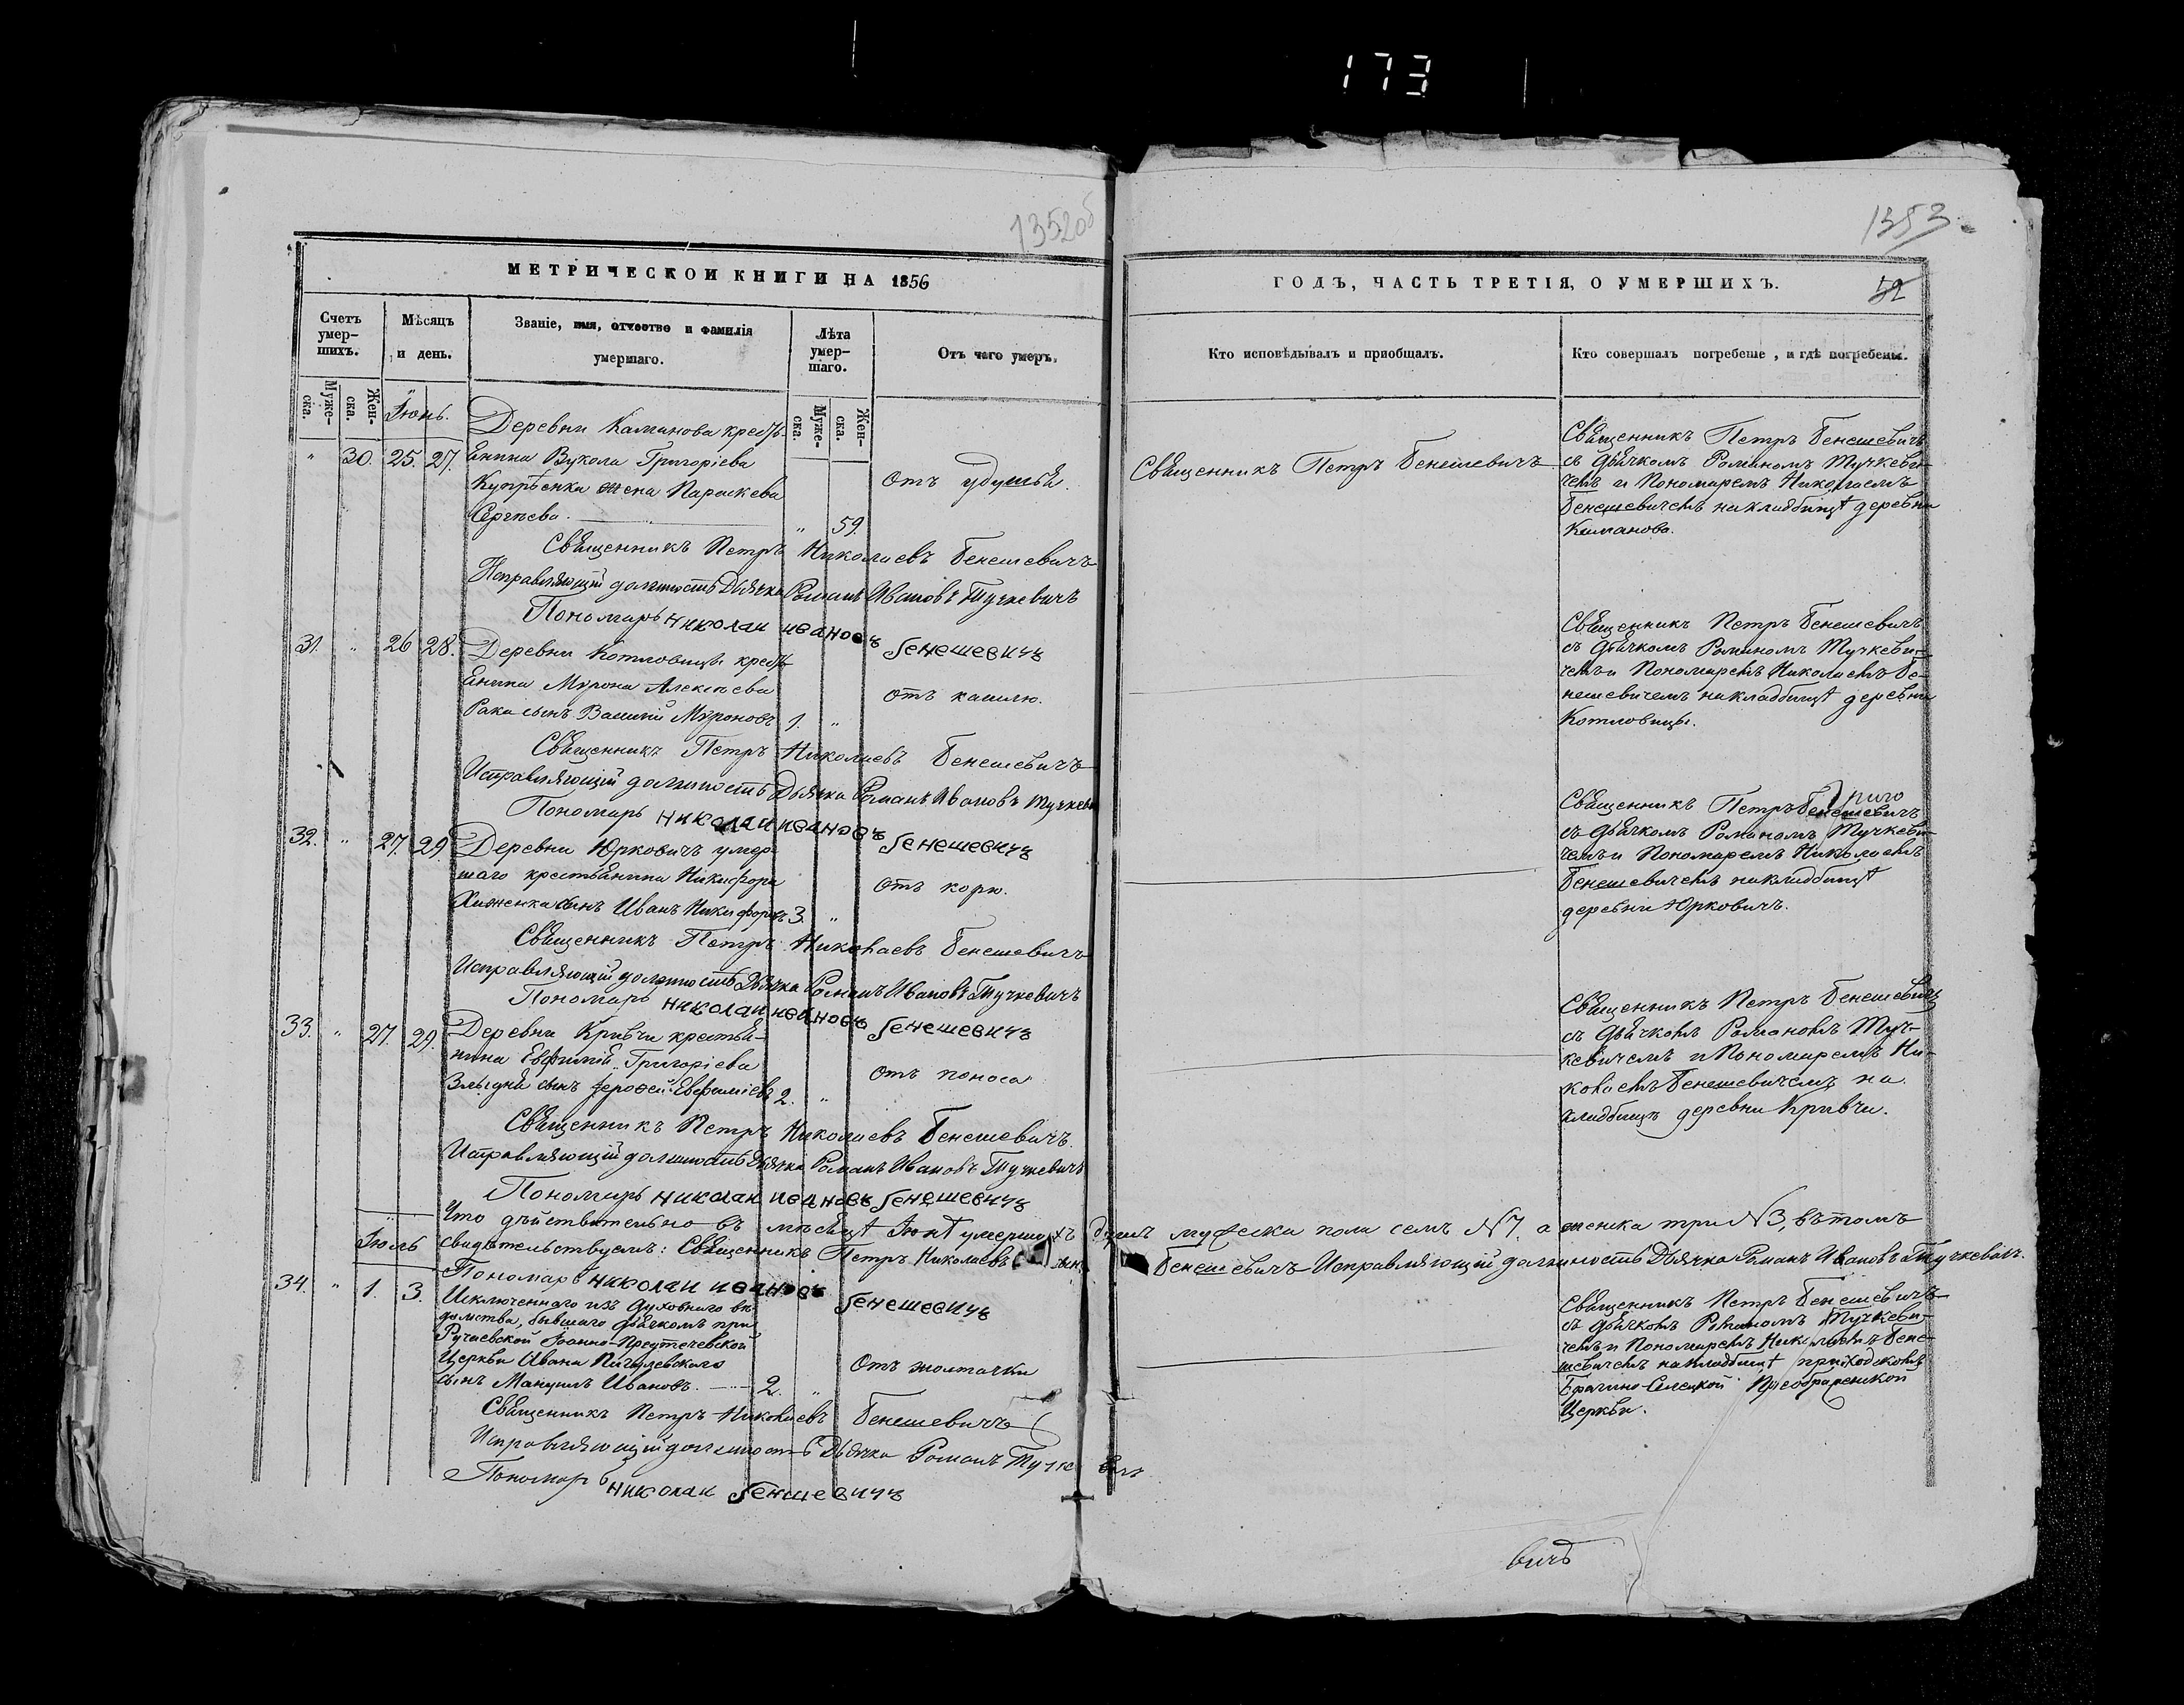 173
1352об
1353
МЕТРИЧЕСКОЙ КНИГИ НА 1856
ГОДЪ, ЧАСТЬ ТРЕТІЯ, О УМЕРШИХЪ.
52
Счетъ умер-шихъ.
Мѣсяцъ и день.
Званіе, имя, отчество и фамилія умершаго.
Лѣта умер-шаго.
Отъ чего умеръ.
Кто исповѣдывалъ и пріобщалъ.
Кто совершалъ погребеніе, и гдѣ погребены.
Муже-ска.
Жен-ска.
Муже-ска.
Жен-ска.
Іюнь.
" 30. 25. 27.
Деревни Каманова кресть-
янина Вукола Григоріева
Купрѣенка жена Параскева
Сергѣева. " 59.
Отъ удушья.
Священникъ Петръ Бенешевичъ
Священникъ Петръ Бенешевичъ
съ дьячкомъ Романомъ Тучкеви-
чемъ и Пономаремъ Николаемъ
Бенешевичемъ на кладбищѣ деревни
Каманова.
Священникъ Петръ Николаевъ Бенешевичъ
Исправляющій должность Дьячка Романъ Ивановъ Тучкевичъ
Пономарь николаи ивановъ бенешевичъ
31. " 26 28.
Деревни Котловицы кресть-
янина Мирона Алексѣева
Рака сынъ Василій Мироновъ 1. "
Отъ кашлю.
Священникъ Петръ Бенешевичъ
съ дьячкомъ Романомъ Тучкеви-
чемъ и Пономаремъ Николаемъ Бе-
нешевичемъ на кладбищѣ деревни
Котловицы.
Священникъ Петръ Николаевъ Бенешевичъ
Исправляющій должность Дьячка Романъ Ивановъ Тучкеви
Пономарь николаи ивановъ бенешевичъ
32. " 27. 29.
Деревни Юрковичъ умер-
шаго крестьянина Никифора
Хиженка сынъ Иванъ Никифоровъ 3. "
Отъ корю.
Священникъ Петръ Бенешевичъ
съ дьячкомъ Романомъ Тучкеви-
чемъ и Пономаремъ Николаемъ
Бенешевичемъ на кладбищѣ
деревни Юрковичъ.
Священникъ Петръ Николаевъ Бенешевичъ
Исправляющій должность Дьячка Романъ Ивановъ Тучкевичъ
Пономарь николаи ивановъ бенешевичъ
33. " 27. 29.
Деревни Кривчи крестья-
нина Евфимій Григоріева
сынъ Іерофей Евфиміевъ 2. "
Отъ поноса
Священникъ Петръ Бенешевичъ
съ дьячкомъ Романомъ Туч-
кевичемъ и Пономаремъ Ни-
колаемъ Бенешевичемъ на
кладбищѣ деревни Кривчи.
Священникъ Петръ Николаевъ Бенешевичъ.
Исправляющій должность Дьячка Романъ Ивановъ Тучкевичъ
Пономарь николаи ивановъ бенешевичъ
Что дѣйствительно въ мѣсяцѣ Іюнѣ умершихъ душъ мужеска пола семь №7. а женска три №3, въ томъ
свидѣтельствуемъ: Священникъ Петръ Николаевъ Бенешевичъ Исправляющій должность Дьячка Романъ Ивановъ Тучкевичъ.
Пономарь николаи ивановъ бенешевичъ
Іюль
34. " 1. 3.
Исключеннаго изъ духовнаго вѣ-
домства, бывшаго дьячкомъ при
Ручаевской Іоанно-Предтечевской
Церкви Ивана Пигулевскаго
сынъ Мануилъ Ивановъ. 2. "
Отъ жолтачки
Священникъ Петръ Бенешевичъ
съ дьячкомъ Романомъ Тучкеви-
чемъ и Пономаремъ Николаемъ Бене-
шевичемъ на кладбищѣ приходскомъ
Брагино-Селецкой Преображенской
Церкви.
Священникъ Петръ Николаевъ Бенешевичъ
Исправляющій должность Дьячка Романъ Тучке
Пономарь николаи бенешевичъ
вичъ